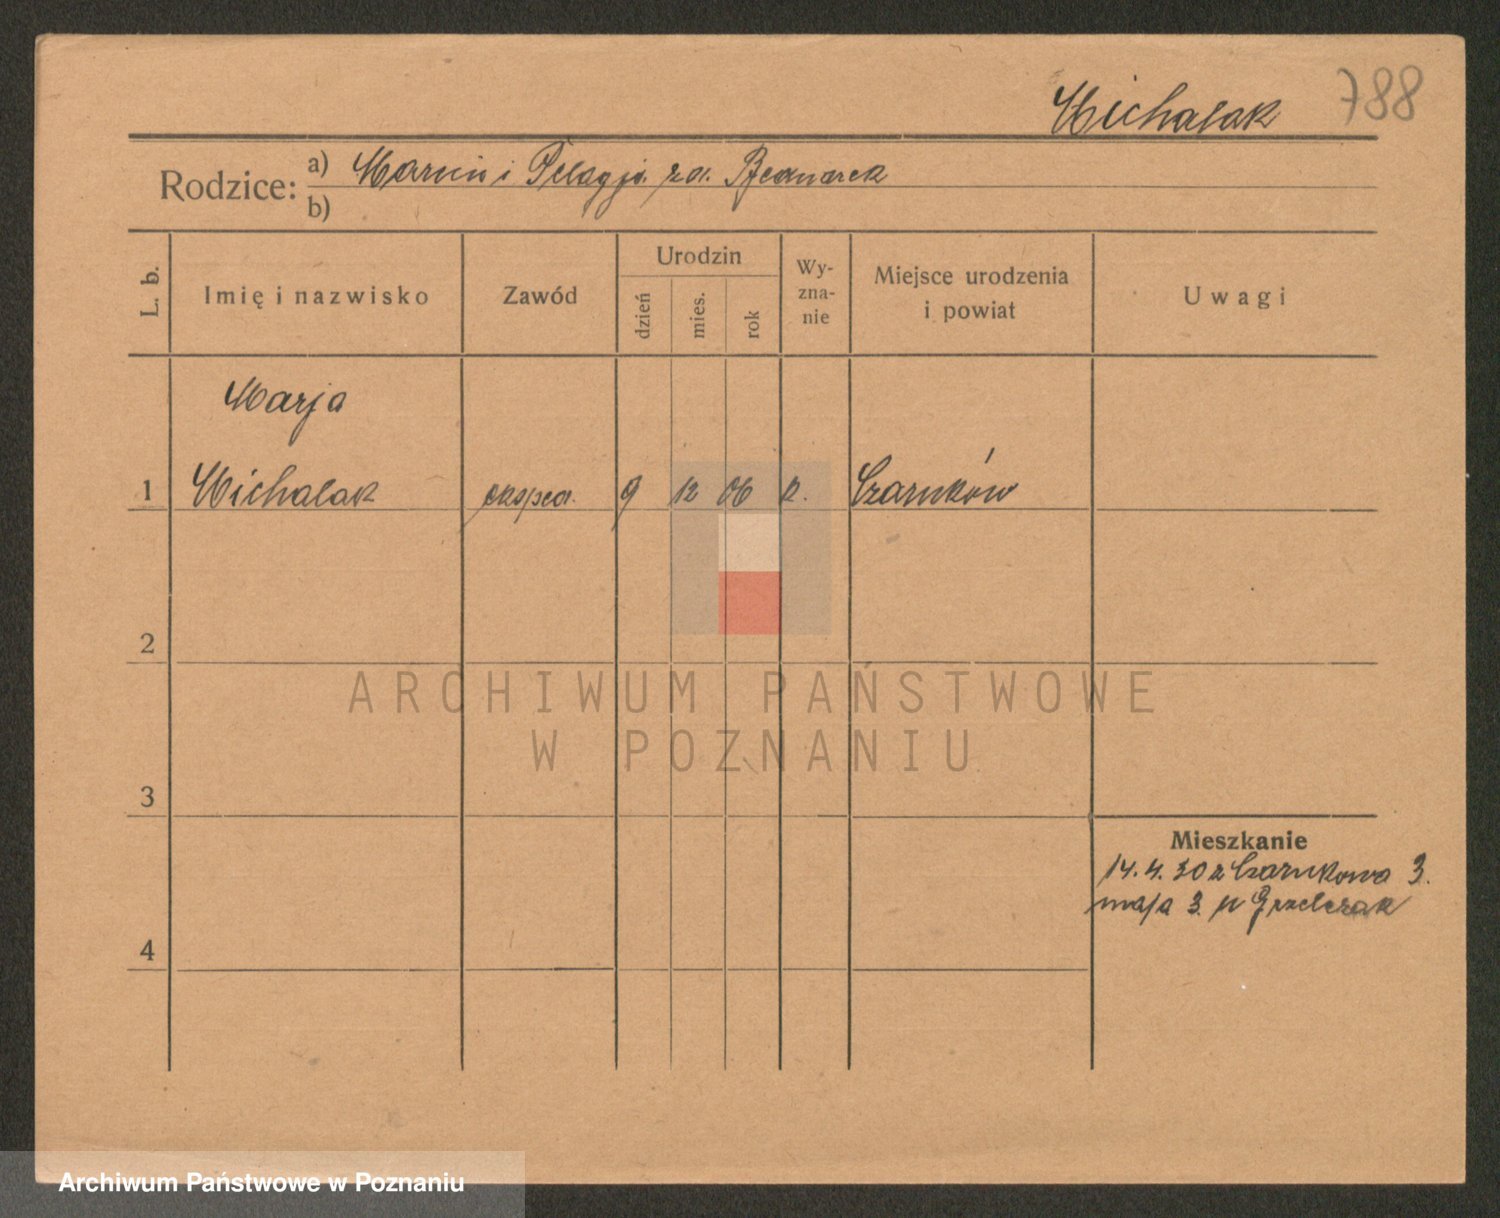 Michalak 788
Rodzice: a) Marcin i Pelagja za. Bednarek
b)
L. b. Imię i nazwisko Zawód Urodzin dzień mies. rok Wy-zna-nie Miejsce urodzenia i powiat Uwagi
Marja
1 Michalak ekspea. 9 12 06 k. Czarnków
2
ARCHIWUM PAŃSTWOWE
W POZNANIU
3
Mieszkanie
14.4.30 z Czarnkowa 3.
maja 3 u Grzelczak
4
Archiwum Państwowe w Poznaniu